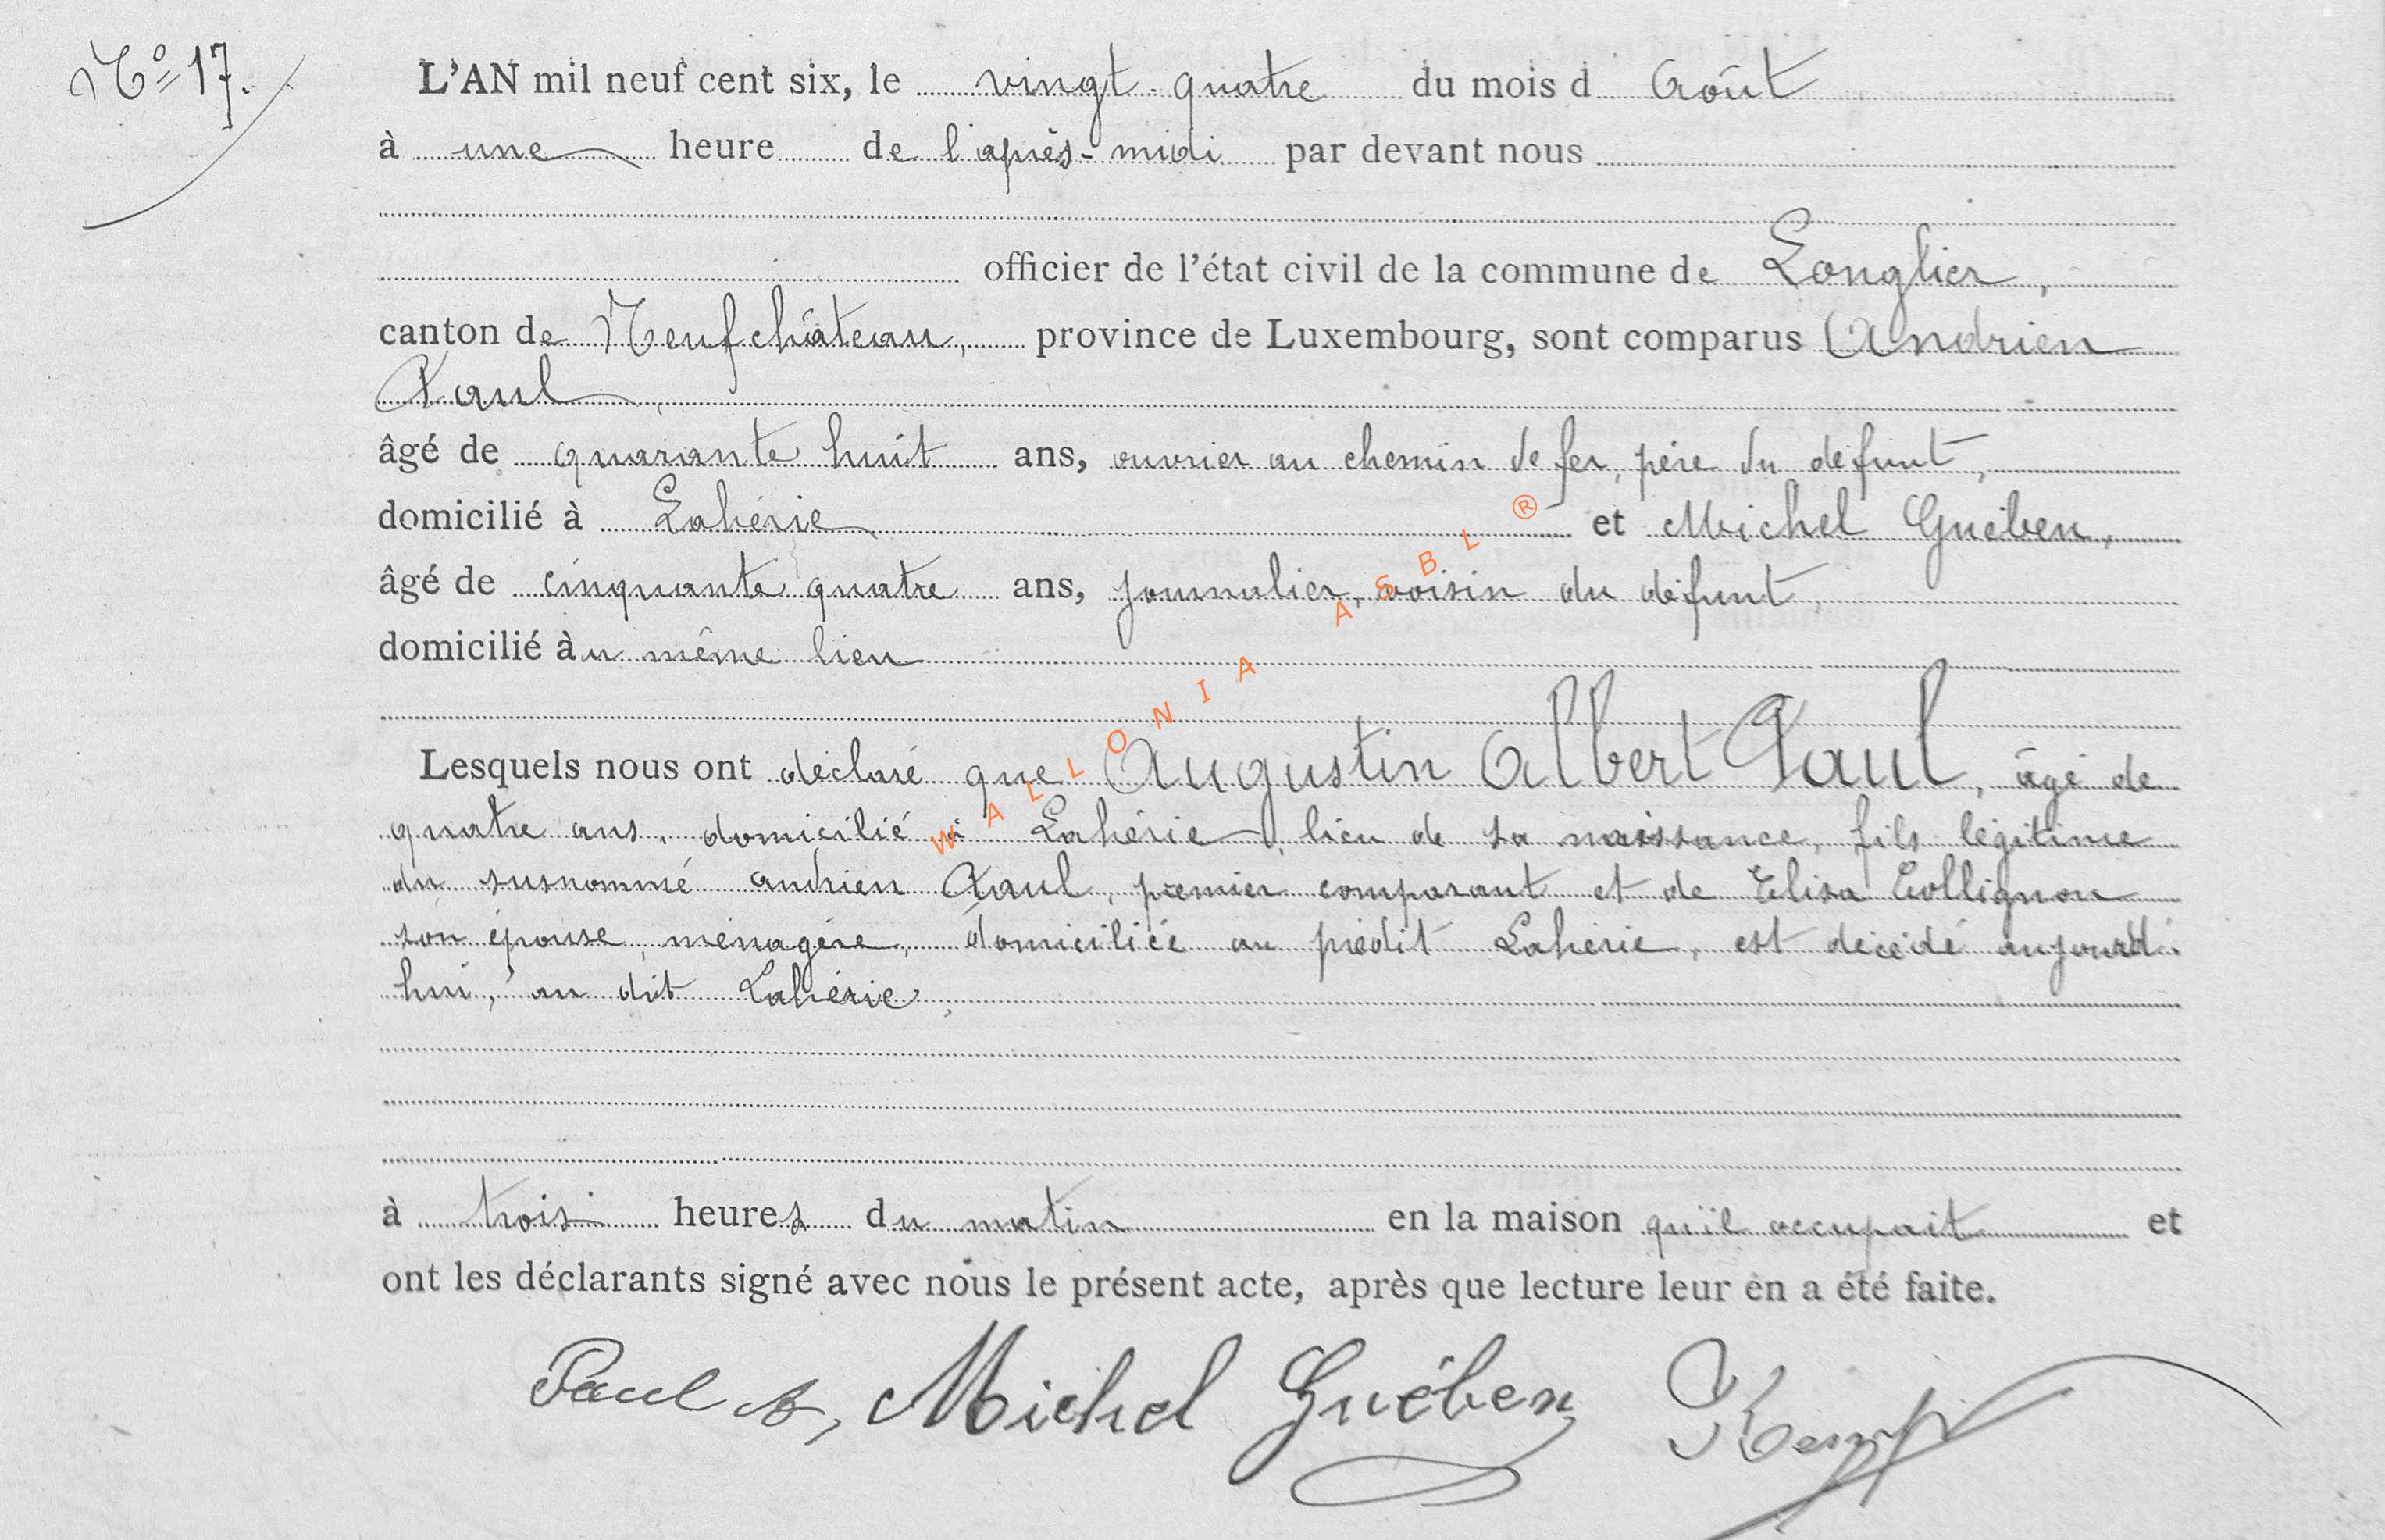 N° 17.
L'AN mil neuf cent six, le vingt-quatre du mois d Août
à une heure de l'après-midi par devant nous
officier de l'état civil de la commune de Longlier,
canton de Neufchâteau, province de Luxembourg, sont comparus Andrien
Paul,
âgé de quarante huit ans, ouvrier au chemin de fer, père du défunt,
domicilié à Lahérie et Michel Guében,
âgé de cinquante quatre ans, journalier, voisin du défunt,
domicilié àu même lieu
Lesquels nous ont déclaré que Augustin Albert Paul, âgé de
quatre ans, domicilié à Lahérie, lieu de sa naissance, fils légitime
du susnommé Andrien Paul, premier comparant et de Elisa Collignon
son épouse, ménagère, domiciliée au prédit Lahérie, est décédé aujourd'
hui, au dit Lahérie,
à trois heures du matin en la maison qu'il occupait et
ont les déclarants signé avec nous le présent acte, après que lecture leur en a été faite.
Paul A, Michel Guében
WALLONIA ASBL ®